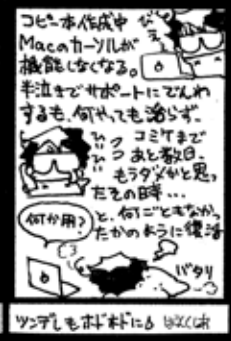 コピー本作成中
Macのカーソルが
機能しなくなる。
半泣きでサポートにでんわ
するも、何やっても治らず。
コミケまで
あと数日、
もうダメかと思っ
たその時…
何か用?
と、何ごともなかっ
たかのように復活
バタリ
ツンデレもホドホドに